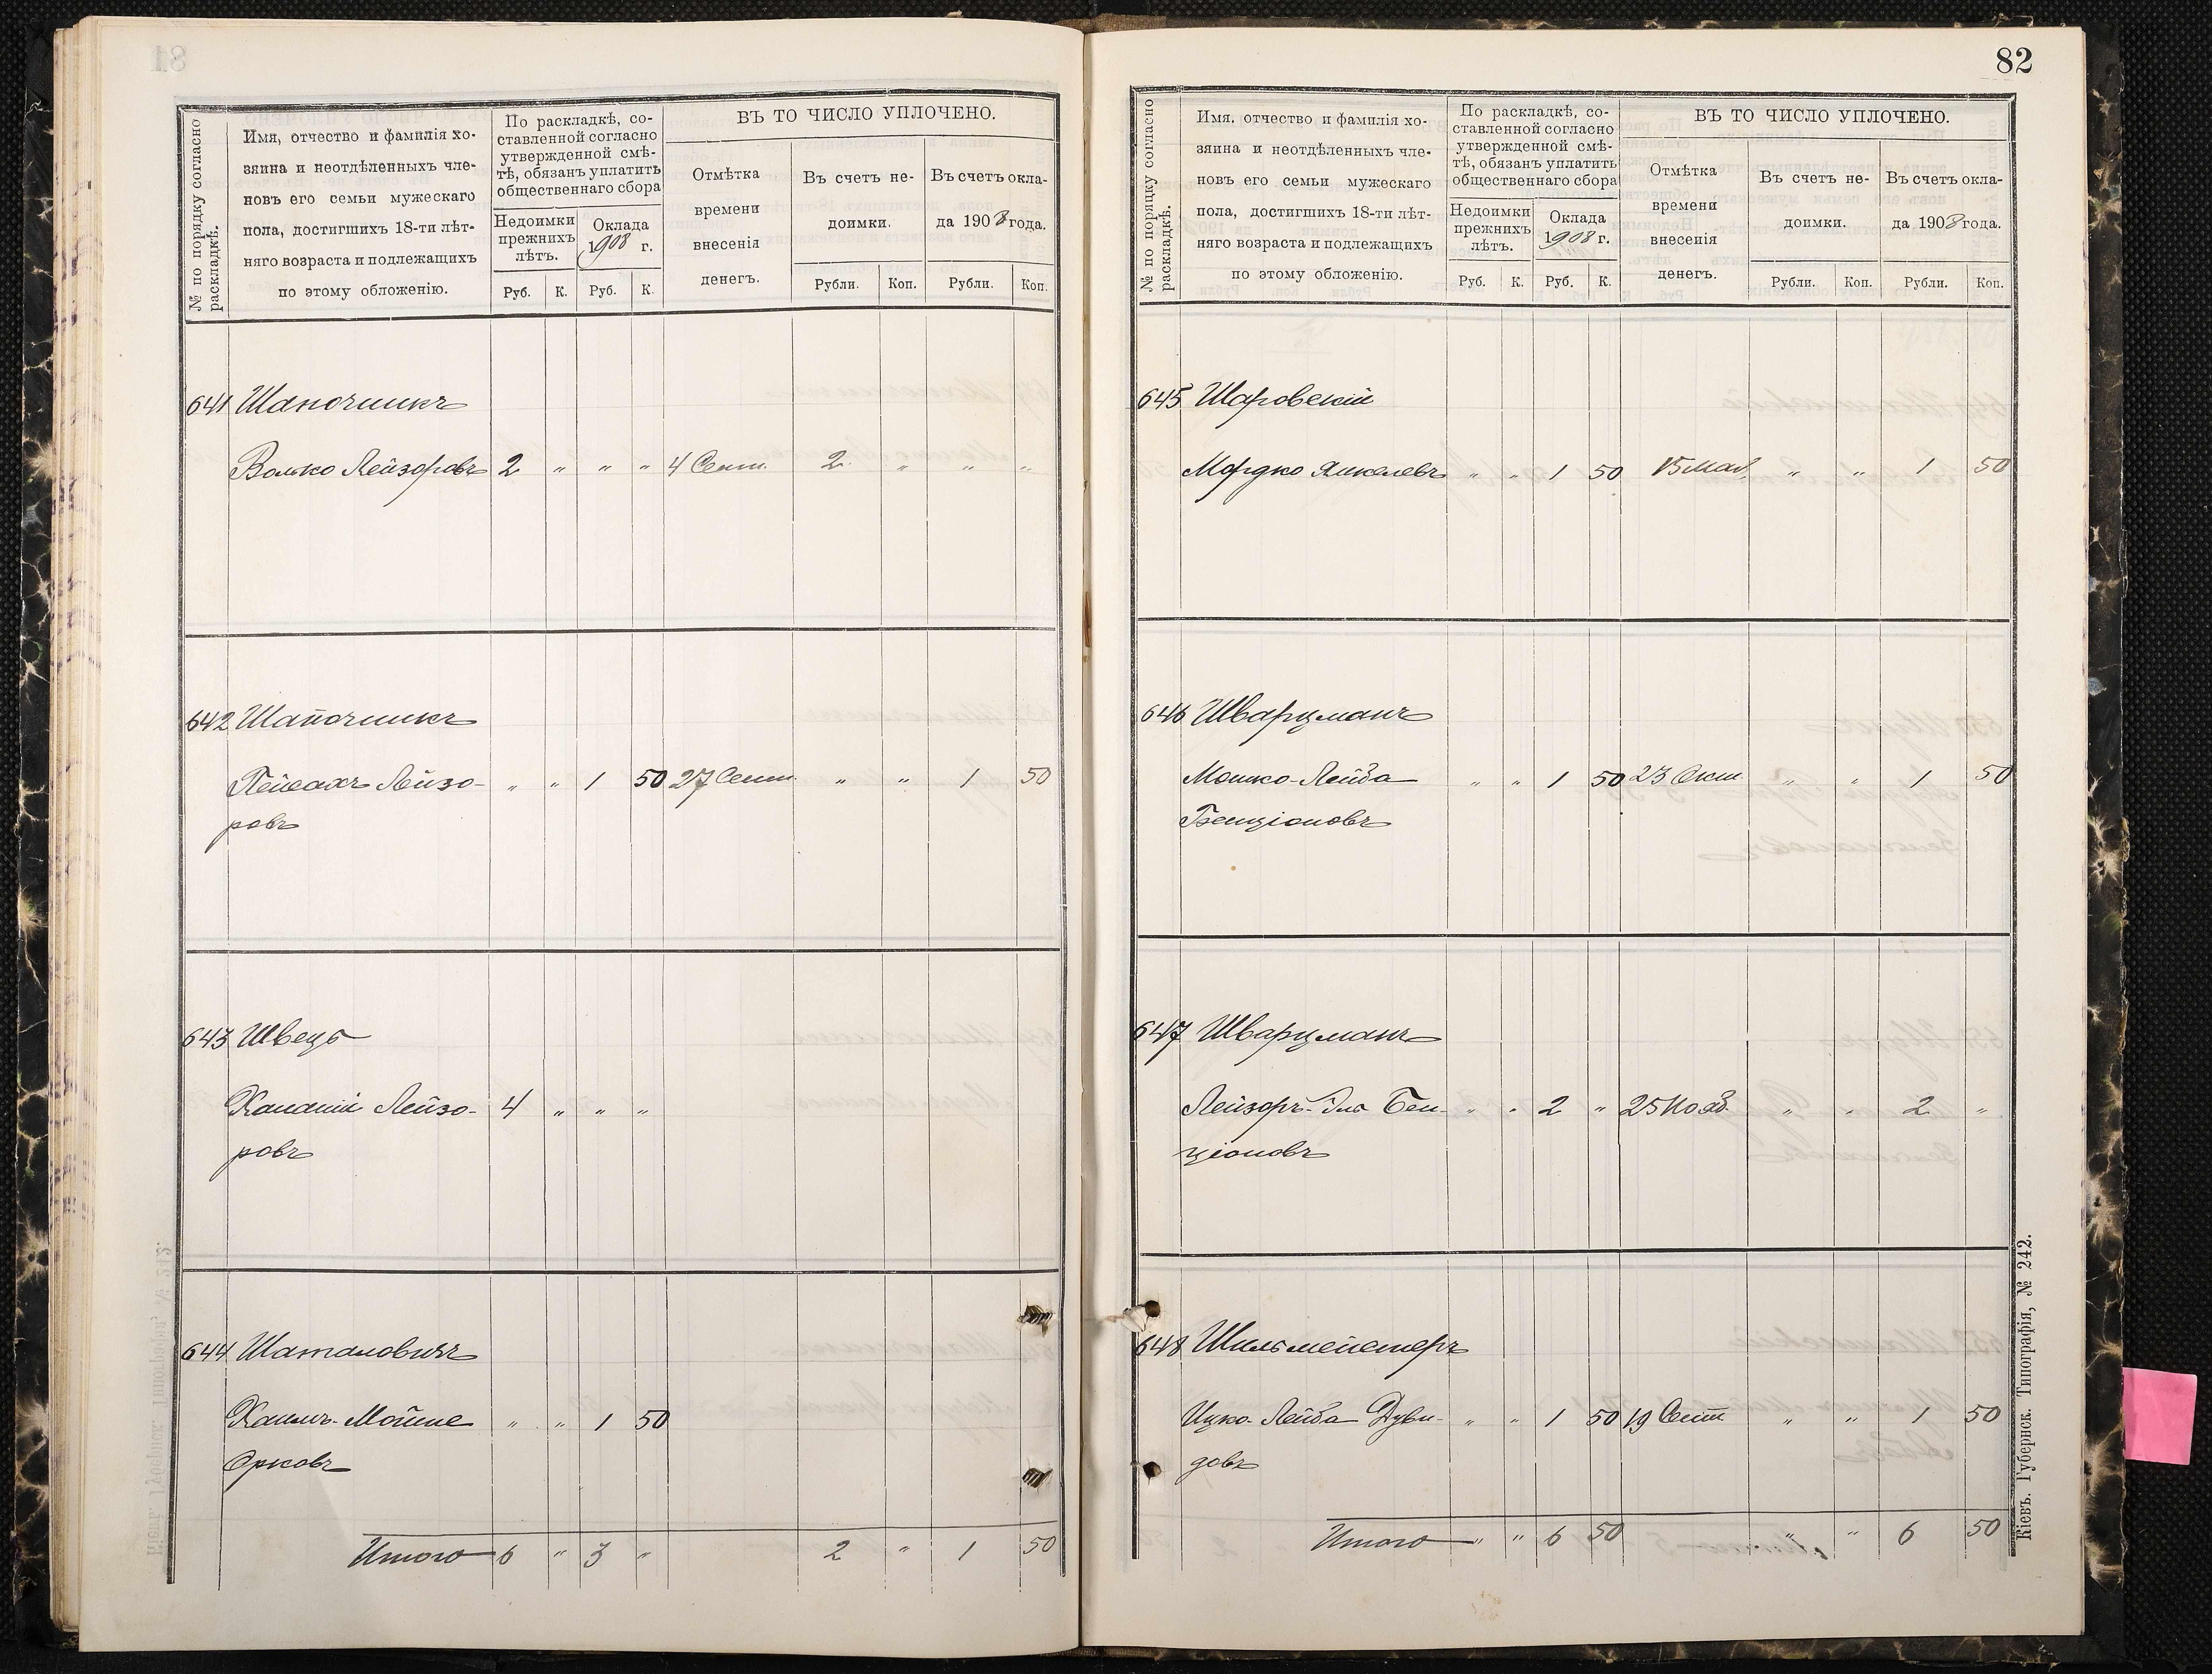 № по порядку согласно раскладкѣ.
Имя, отчество и фамилія хо-
зяина и неотдѣленныхъ чле-
новъ его семьи мужескаго
пола, достигшихъ 18-ти лѣт-
няго возраста и подлежащихъ
по этому обложенію.
По раскладкѣ, со-
ставленной согласно
утвержденной смѣ-
тѣ, обязанъ уплатить
общественнаго сбора
Недоимки
прежнихъ
лѣтъ.
Оклада
1908 г.
Руб. К. Руб. К.
ВЪ ТО ЧИСЛО УПЛОЧЕНО.
Отмѣтка
времени
внесенія
денегъ.
Въ счетъ не-
доимки.
Въ счетъ окла-
да 1908 года.
Рубли. Коп. Рубли. Коп.
641 Шапочникъ
Волько Лейзоровъ 2 " " " 4 Сент. 2 " " "
642 Шапочникъ
Пейсахъ Лейзо- " " 1 50 27 Сент. " " 1 50
ровъ
643 Швецъ
Хананій Лейзо- 4 " " "
ровъ
644
Хаимъ-Мойше " " 1 50
Сруковъ
Итого 6 " 3 " 2 " 1 50
82
№ по порядку согласно раскладкѣ.
Имя, отчество и фамилія хо-
зяина и неотдѣленныхъ чле-
новъ его семьи мужескаго
пола, достигшихъ 18-ти лѣт-
няго возраста и подлежащихъ
по этому обложенію.
По раскладкѣ, со-
ставленной согласно
утвержденной смѣ-
тѣ, обязанъ уплатить
общественнаго сбора
Недоимки
прежнихъ
лѣтъ.
Оклада
1908 г.
Руб. К. Руб. К.
ВЪ ТО ЧИСЛО УПЛОЧЕНО.
Отмѣтка
времени
внесенія
денегъ.
Въ счетъ не-
доимки.
Въ счетъ окла-
да 1908 года.
Рубли. Коп. Рубли. Коп.
645 Шаровскій
Мордко Янкелевъ " " 1 50 15 Мая " " 1 50
646 Шварцманъ
Мошко-Лейба " " 1 50 23 Окт. " " 1 50
Бенціоновъ
647 Шварцманъ
Лейзоръ- Бен- " " 2 " 25 Нояб. " " 2 "
ціоновъ
648 Шильмейстеръ
Ицко-Лейба Дуви- " " 1 50 19 Сент " " 1 50
довъ
Итого " " 6 50 " " 6 50
Кіевъ. Губернск. Типографія, № 242.